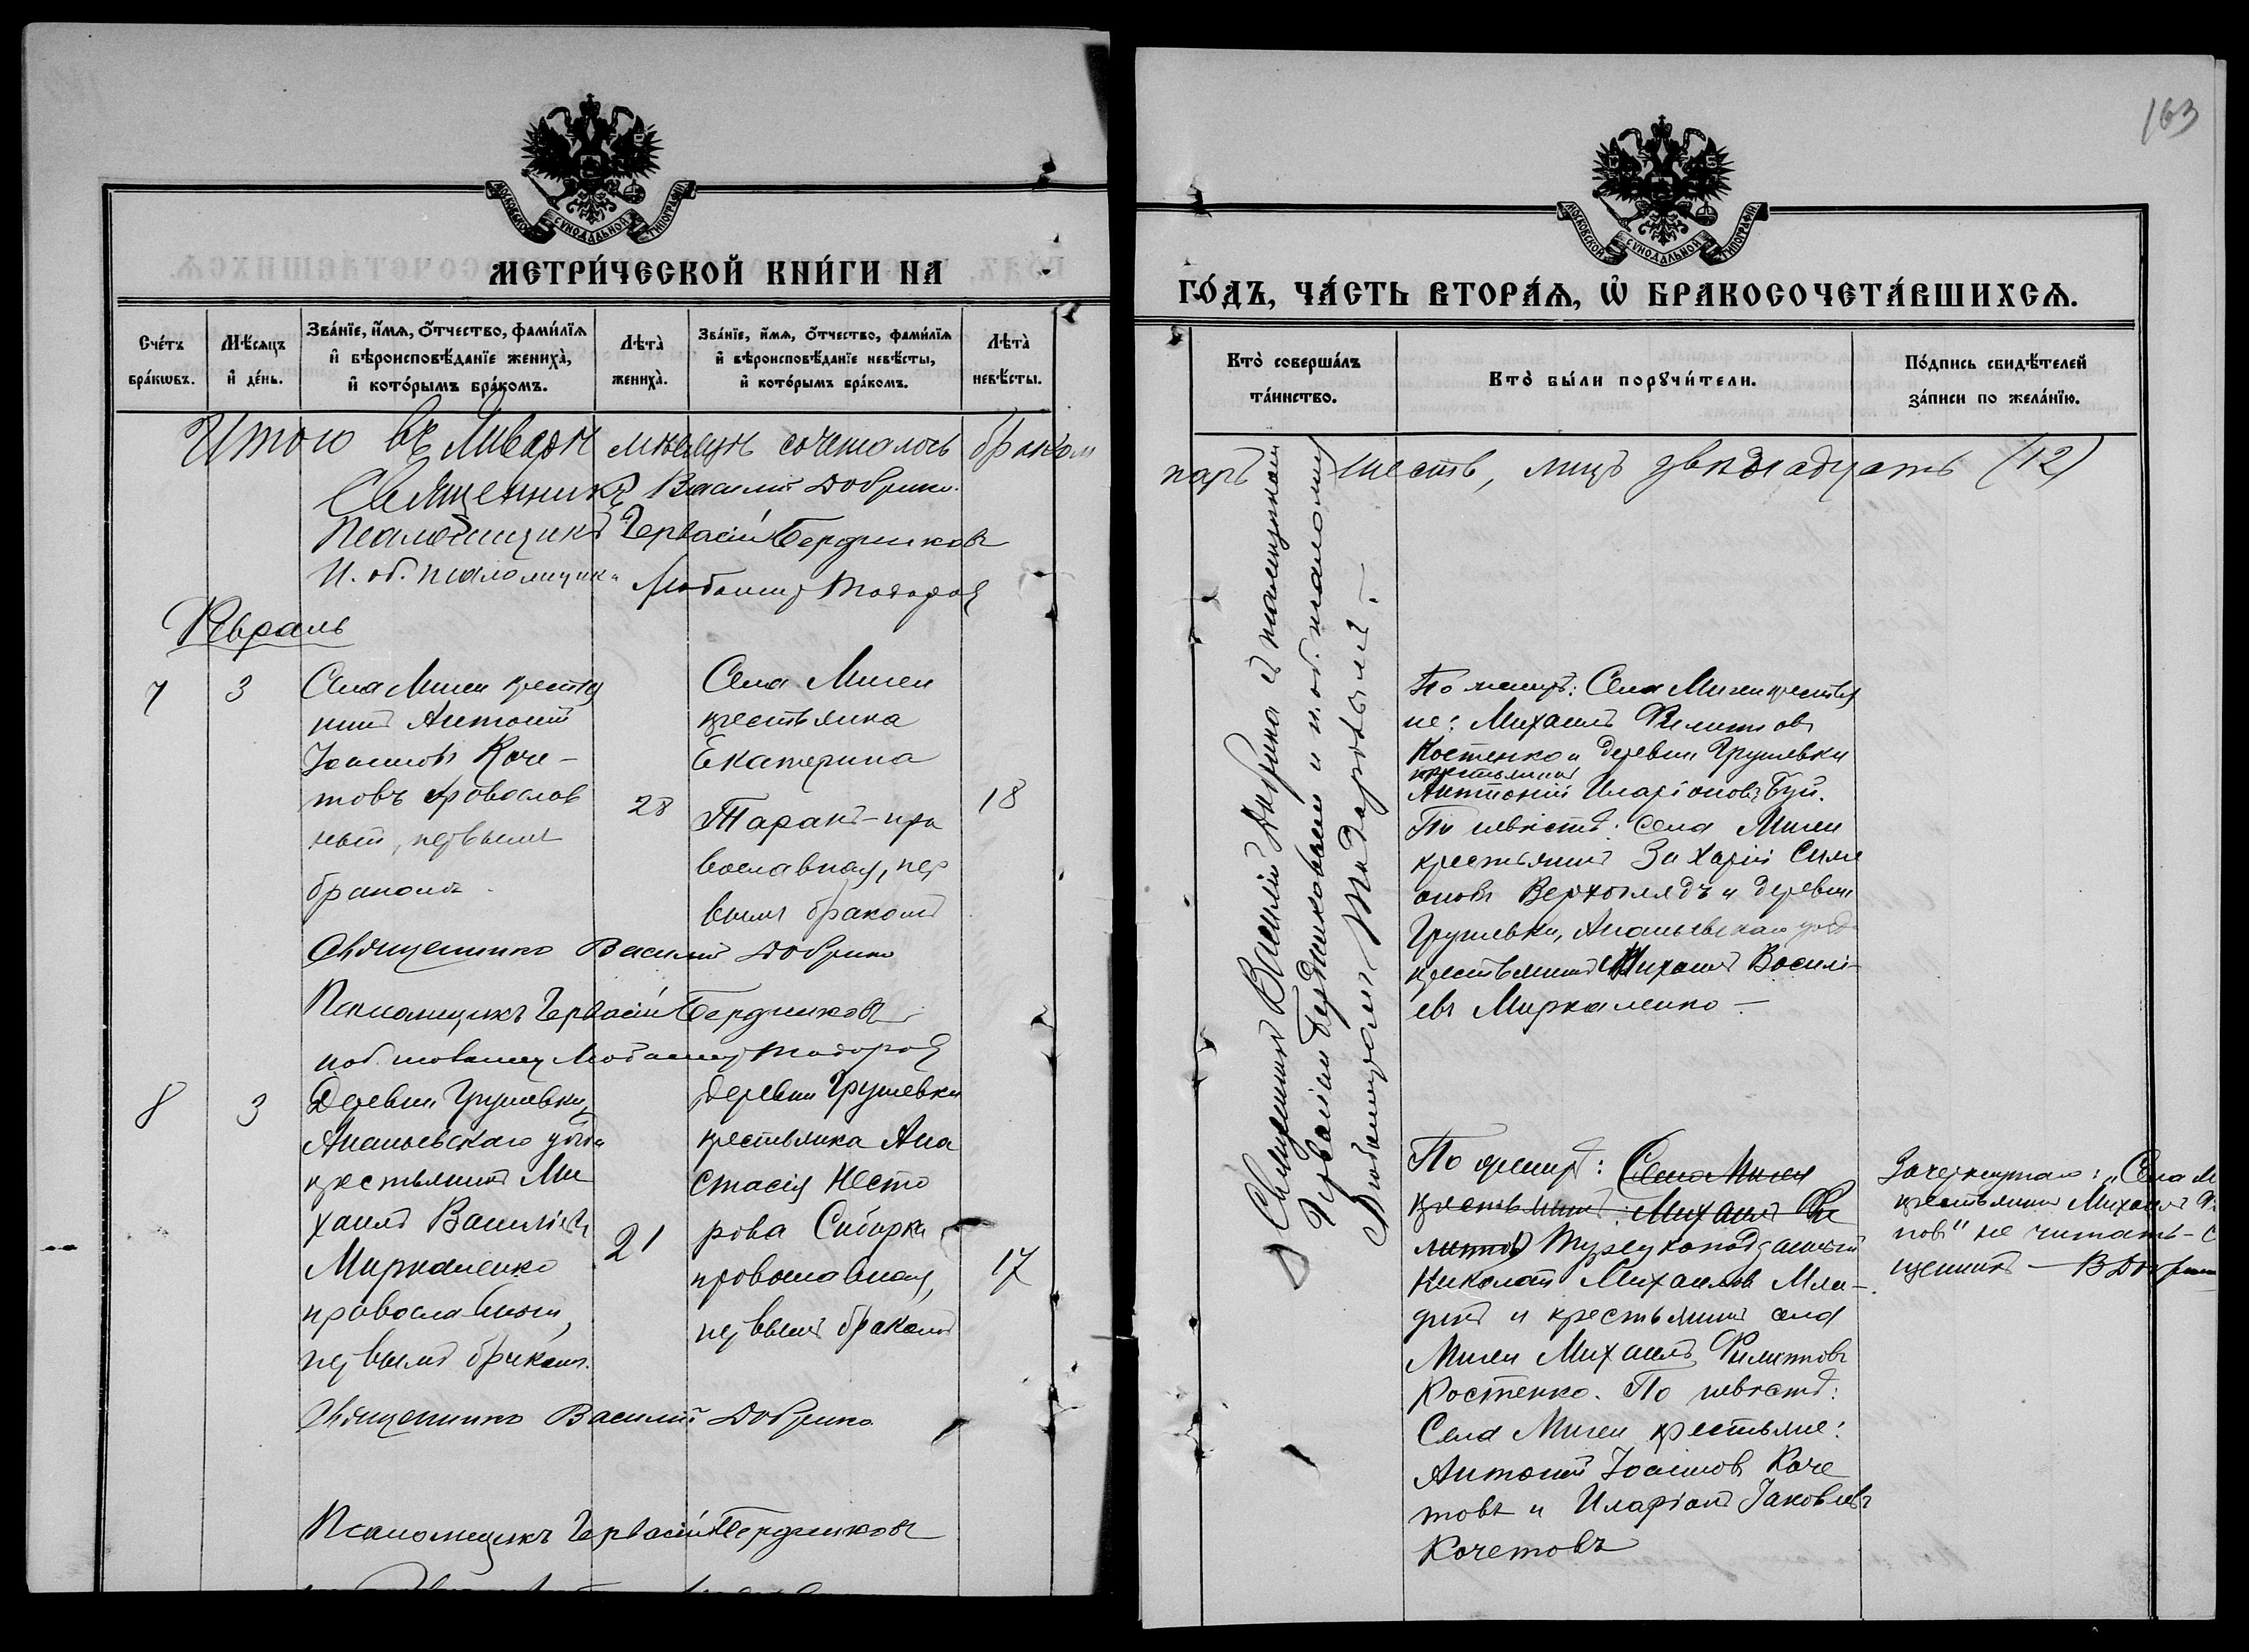 163
МОСКОВСКОЙ СѴНОДАЛЬНОЙ ТИПОГРАФІИ
МЕТРИ́ЧЕСКОЙ КНИ́ГИ НА
Сче́тъ бра́кѡвъ.
Мѣ́сяцъ и҆ де́нь.
Зва́нїе, и҆́мя, ѻ҆́тчество, фами́лїя
и҆ вѣроисповѣ́данїе жениха̀,
и҆ кото́рымъ бра́комъ.
Лѣта̀ жениха̀.
Зва́нїе, и҆́мя, ѻ҆́тчество, фами́лїя
и҆ вѣроисповѣ́данїе невѣ́сты,
и҆ кото́рымъ бра́комъ.
Лѣта̀ невѣ́сты.
Итого въ Январѣ мѣсяцѣ сочеталось бракомъ
Священникъ Василій Добрино
Псаломщикъ Гервасій Бердниковъ
И. об. псаломщика Тодоровъ
Февраль
7
3
Села Мигеи крестья
нинъ Антоній
Іоанновъ Коче-
товъ православ
ный, первымъ
бракомъ.
28
Села Мигеи
крестьянка
Екатерина
Таранъ - пра
вославная, пер
вымъ бракомъ
18
Священникъ Василій Добрино
Псаломщикъ Гервасій Бердниковъ
Тодоровъ
8
3
Деревни Грушевки,
Ананьевскаго уѣзда
крестьянинъ Ми
хаилъ Васильевъ
Мирканенко
православный,
первымъ бракомъ.
21
Деревни Грушевки
крестьянка Ана
стасія Несто
рова Сибирка
православная,
первымъ бракомъ
17
Священникъ Василій Добрино
Псаломщикъ Гервасій Бердниковъ
МОСКОВСКОЙ СѴНОДАЛЬНОЙ ТИПОГРАФІИ
ГО́ДЪ, ЧА́СТЬ ВТОРА́Я, Ѡ҆ БРАКОСОЧЕТА́ВШИХСЯ.
Кто̀ соверша́лъ
та́инство.
Кто̀ бы́ли порꙋчи́тели.
По́дпись свидѣ́телей
за́писи по жела́нїю.
паръ шесть, лицъ двѣнадцать (12)
Священникъ Василій Добрино съ псаломщикомъ
Гервасіемъ Бердниковымъ и и. об. псаломщ
Тодоровымъ.
По женихѣ: Села Мигеи крестья
не: Михаилъ Филиповъ
Костенко и деревни Грушевки
крестьянинъ
Антоній Иларіоновъ Буй.
По невѣстѣ: Села Мигеи
крестьянинъ Захарій Симе
оновъ Верхоглядъ и деревни
Грушевки, Ананьевскаго уѣзд
крестьянинъ Михаилъ Василі-
евъ Мирканенко -
По женихѣ: Села Мигеи
крестьянинъ: Михаилъ Фи
липповъ Турецкоподданный
Николай Михаиловъ Мла-
динъ и крестьянинъ села
Мигеи Михаилъ Филипповъ
Костенко. По невѣстѣ:
Села Мигеи крестьяне:
Антоній Іоанновъ Коче
товъ и Иларіонъ Іаковлевъ
Кочетовъ
Зачеркнутаго: "Села М
крестьянинъ Михаилъ Фи
повъ" не читать - С
щенникъ - В Добрино